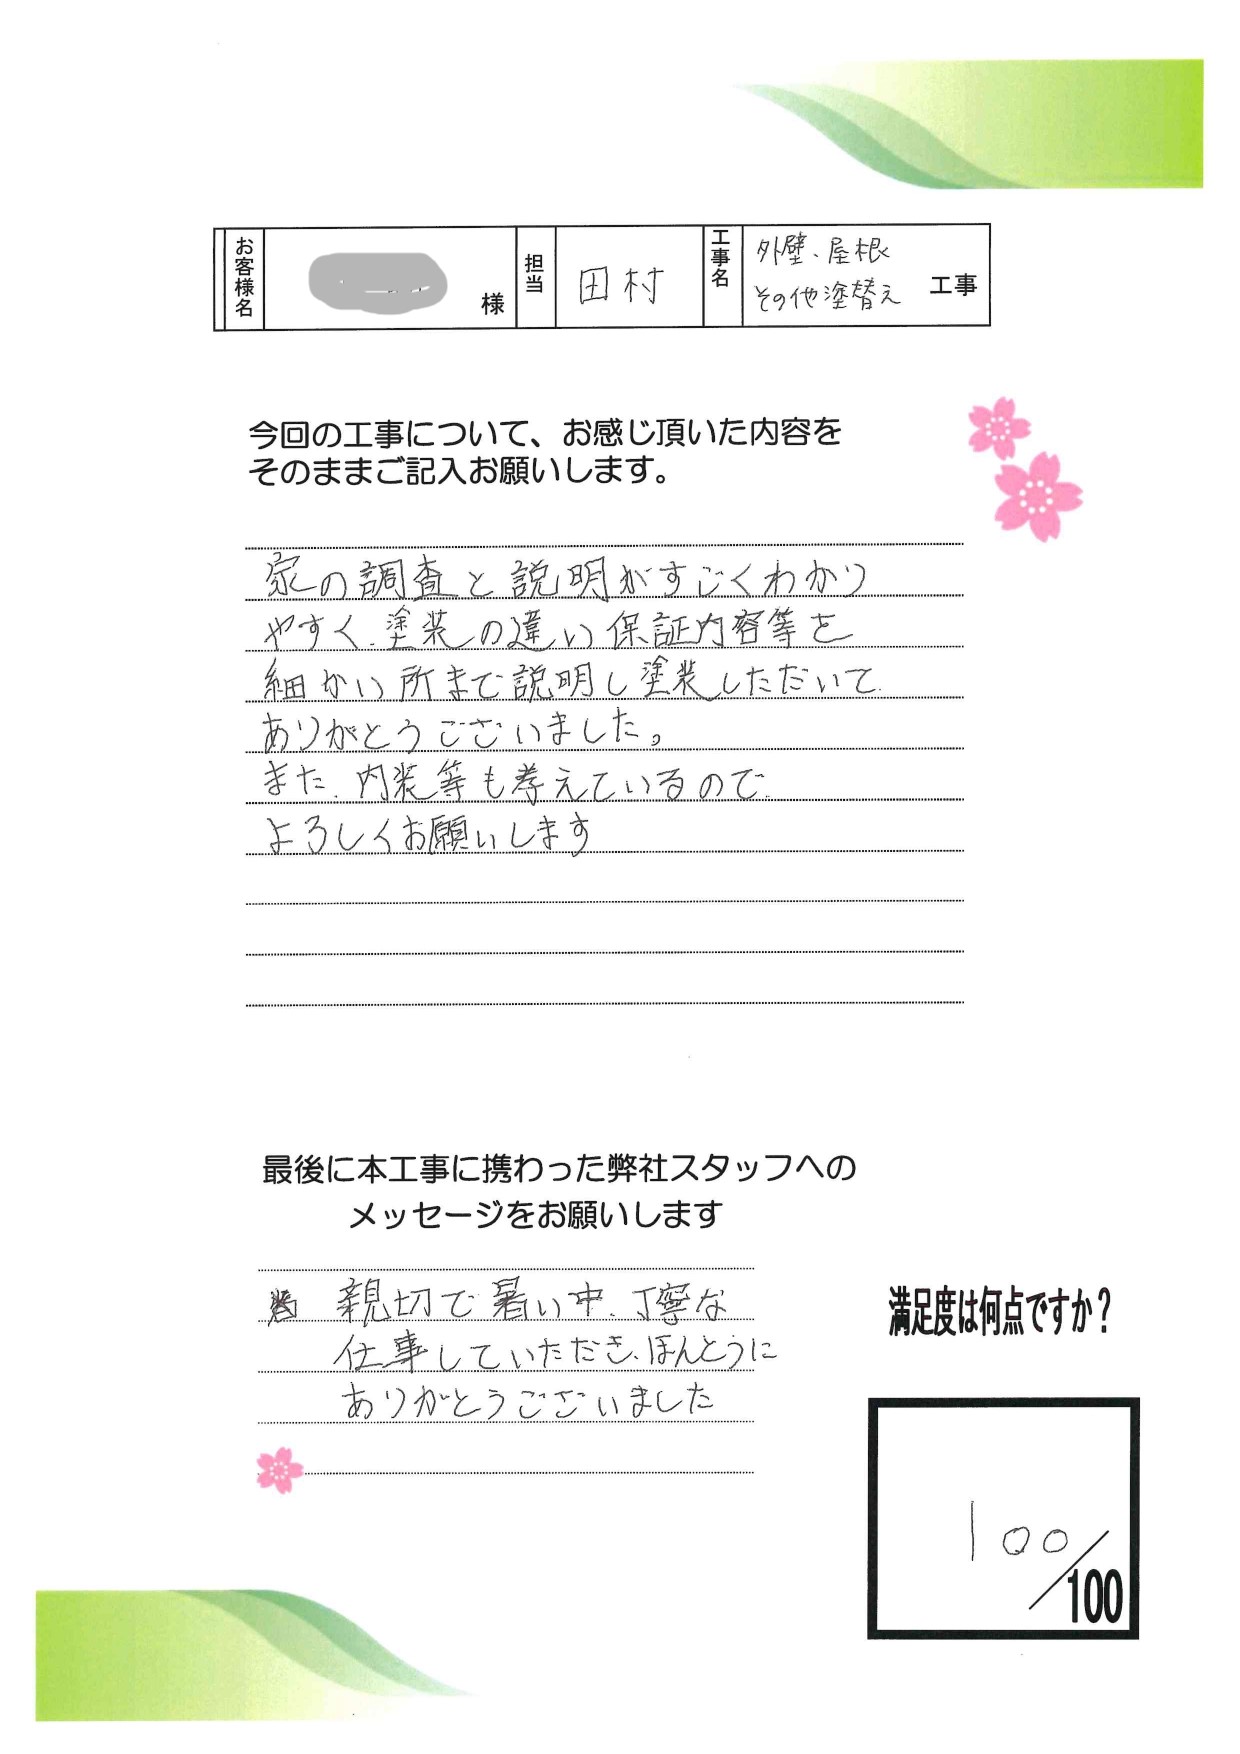 お客様名
様
担当
田村
工事名
外壁、屋根
その他塗替え
工事
今回の工事について、お感じ頂いた内容を
そのままご記入お願いします。
家の調査と説明がすごくわかり
やすく、塗装の違い保証内容等を
細かい所まで説明し塗装しただいて
ありがとうございました。
また、内装等も考えているので
よろしくお願いします
最後に本工事に携わった弊社スタッフへの
メッセージをお願いします
親切で暑い中、丁寧な
仕事していただき、ほんとうに
ありがとうございました
満足度は何点ですか?
100/100